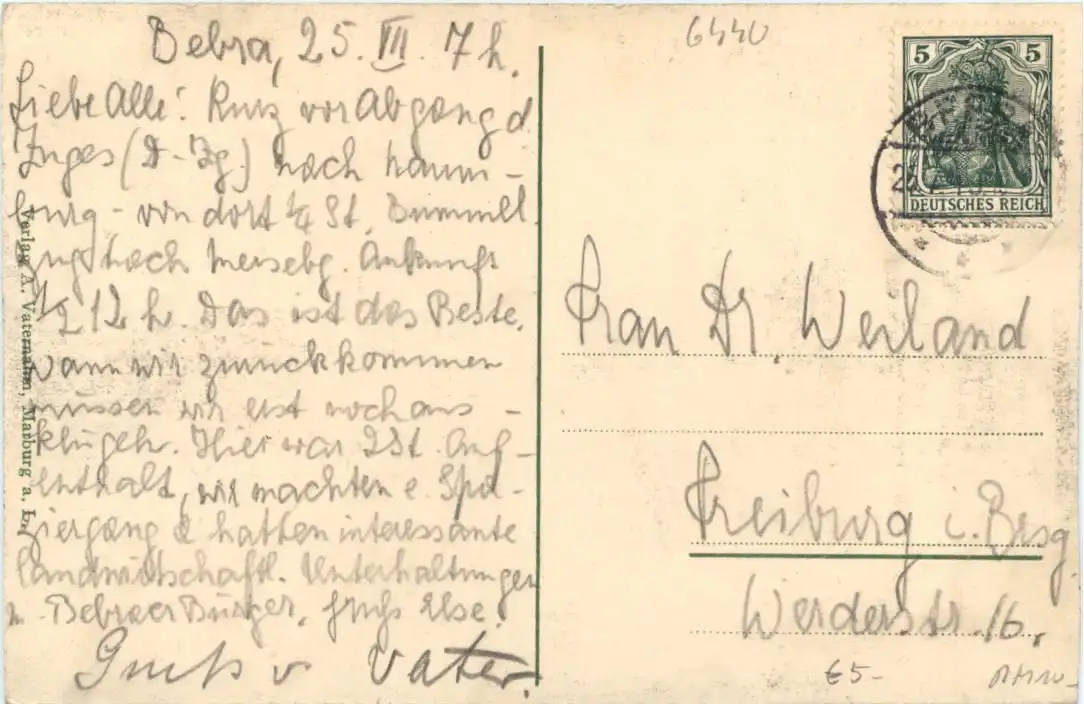 Bebra, 25. III. 7 h.
Liebe Alle! Kurz vor Abgang d.
Zuges (D-Zg.) nach Naum-
burg - von dort 1/4 St. Bummel
zug nach Mersebg. Ankunft
1/2 12 h. Das ist das Beste.
wann wir zurückkommen
müssen wir erst noch aus-
klügeln. Hier war 2 St. Auf-
enthalt, wir machten e. Spa-
ziergang & hatten interessante
landwirtschaftl. Unterhaltungen
m. Bebraer Bürger. Gruß Else.
Gruß v Vater.
Verlag A. Vaternahm, Marburg a. L.
6440
5 5
DEUTSCHES REICH
Frau Dr. Weiland
Freiburg i. Brsg.
Werderstr. 16.
€5-